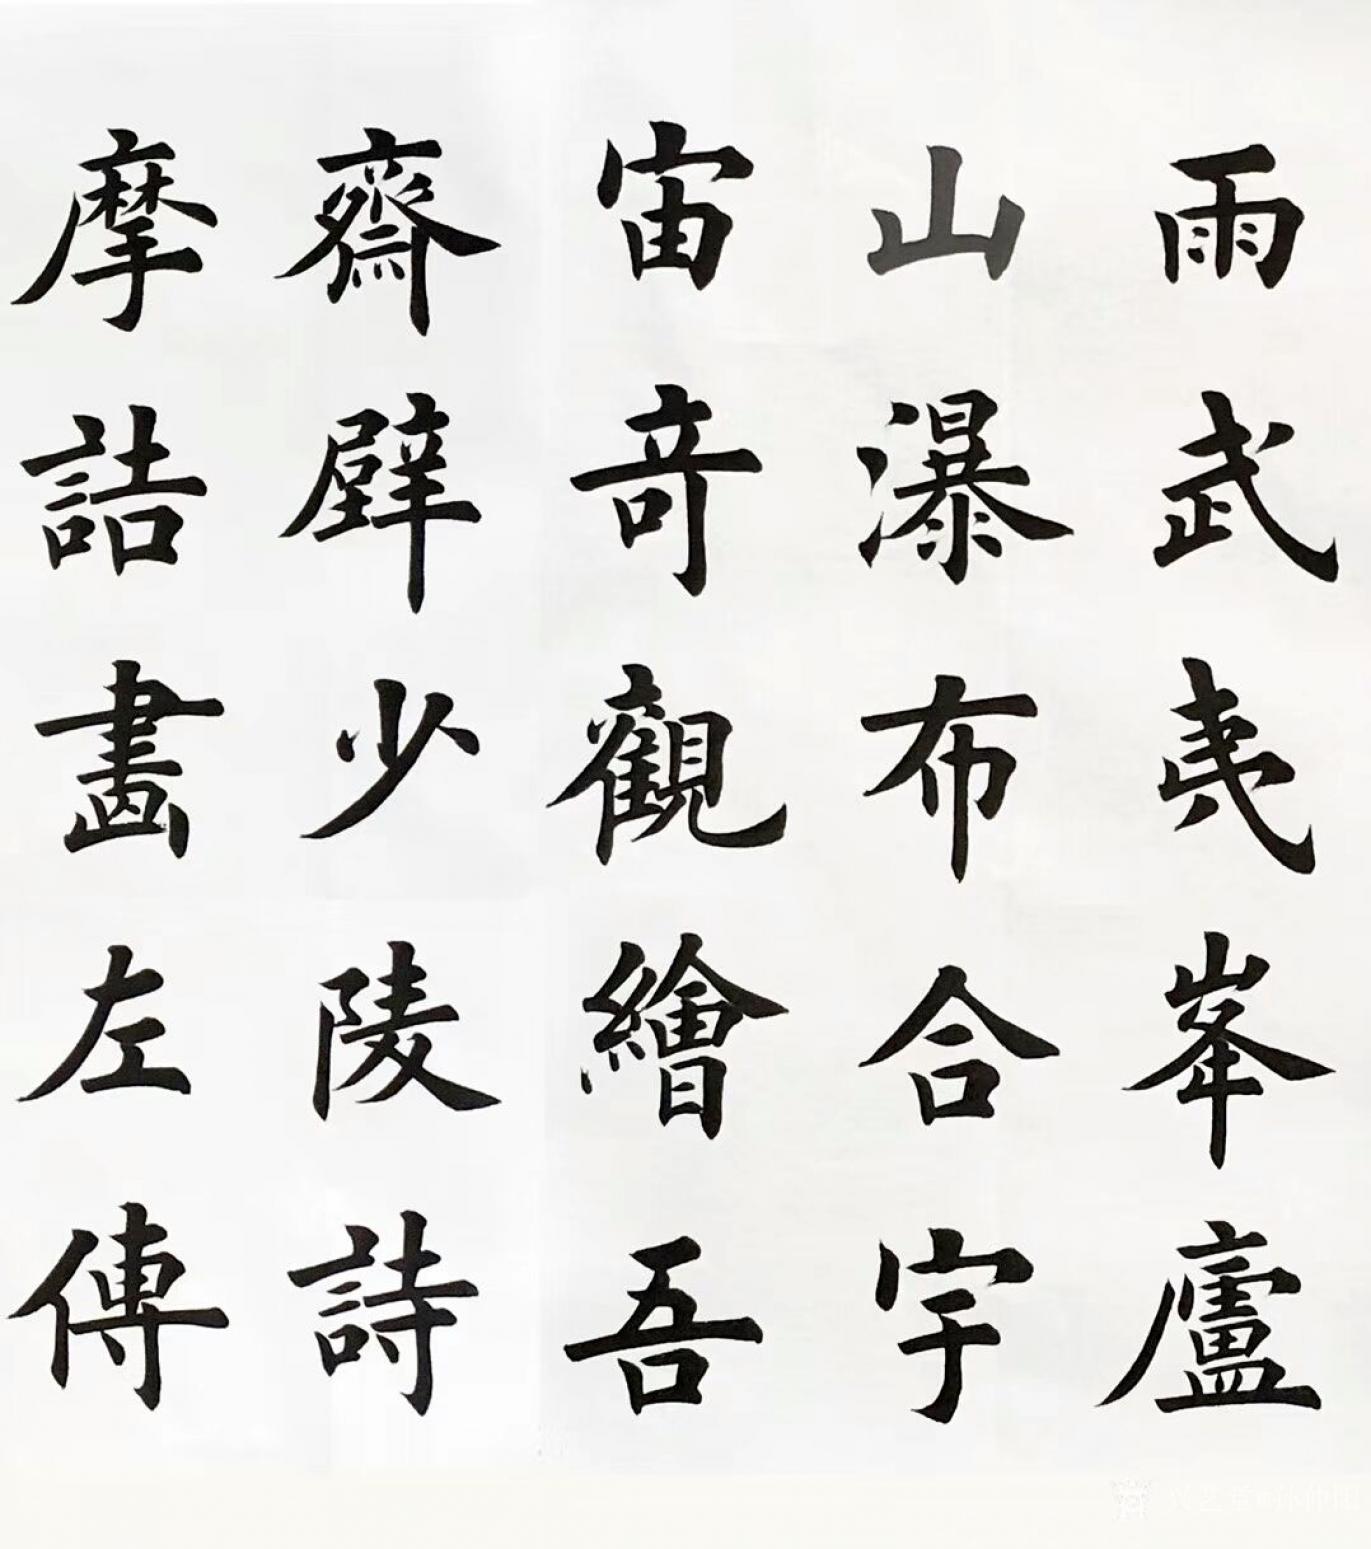 雨武夷峯廬
山瀑布合宇
宙奇觀繪吾
齋壁少陵詩
摩詰畫左傳